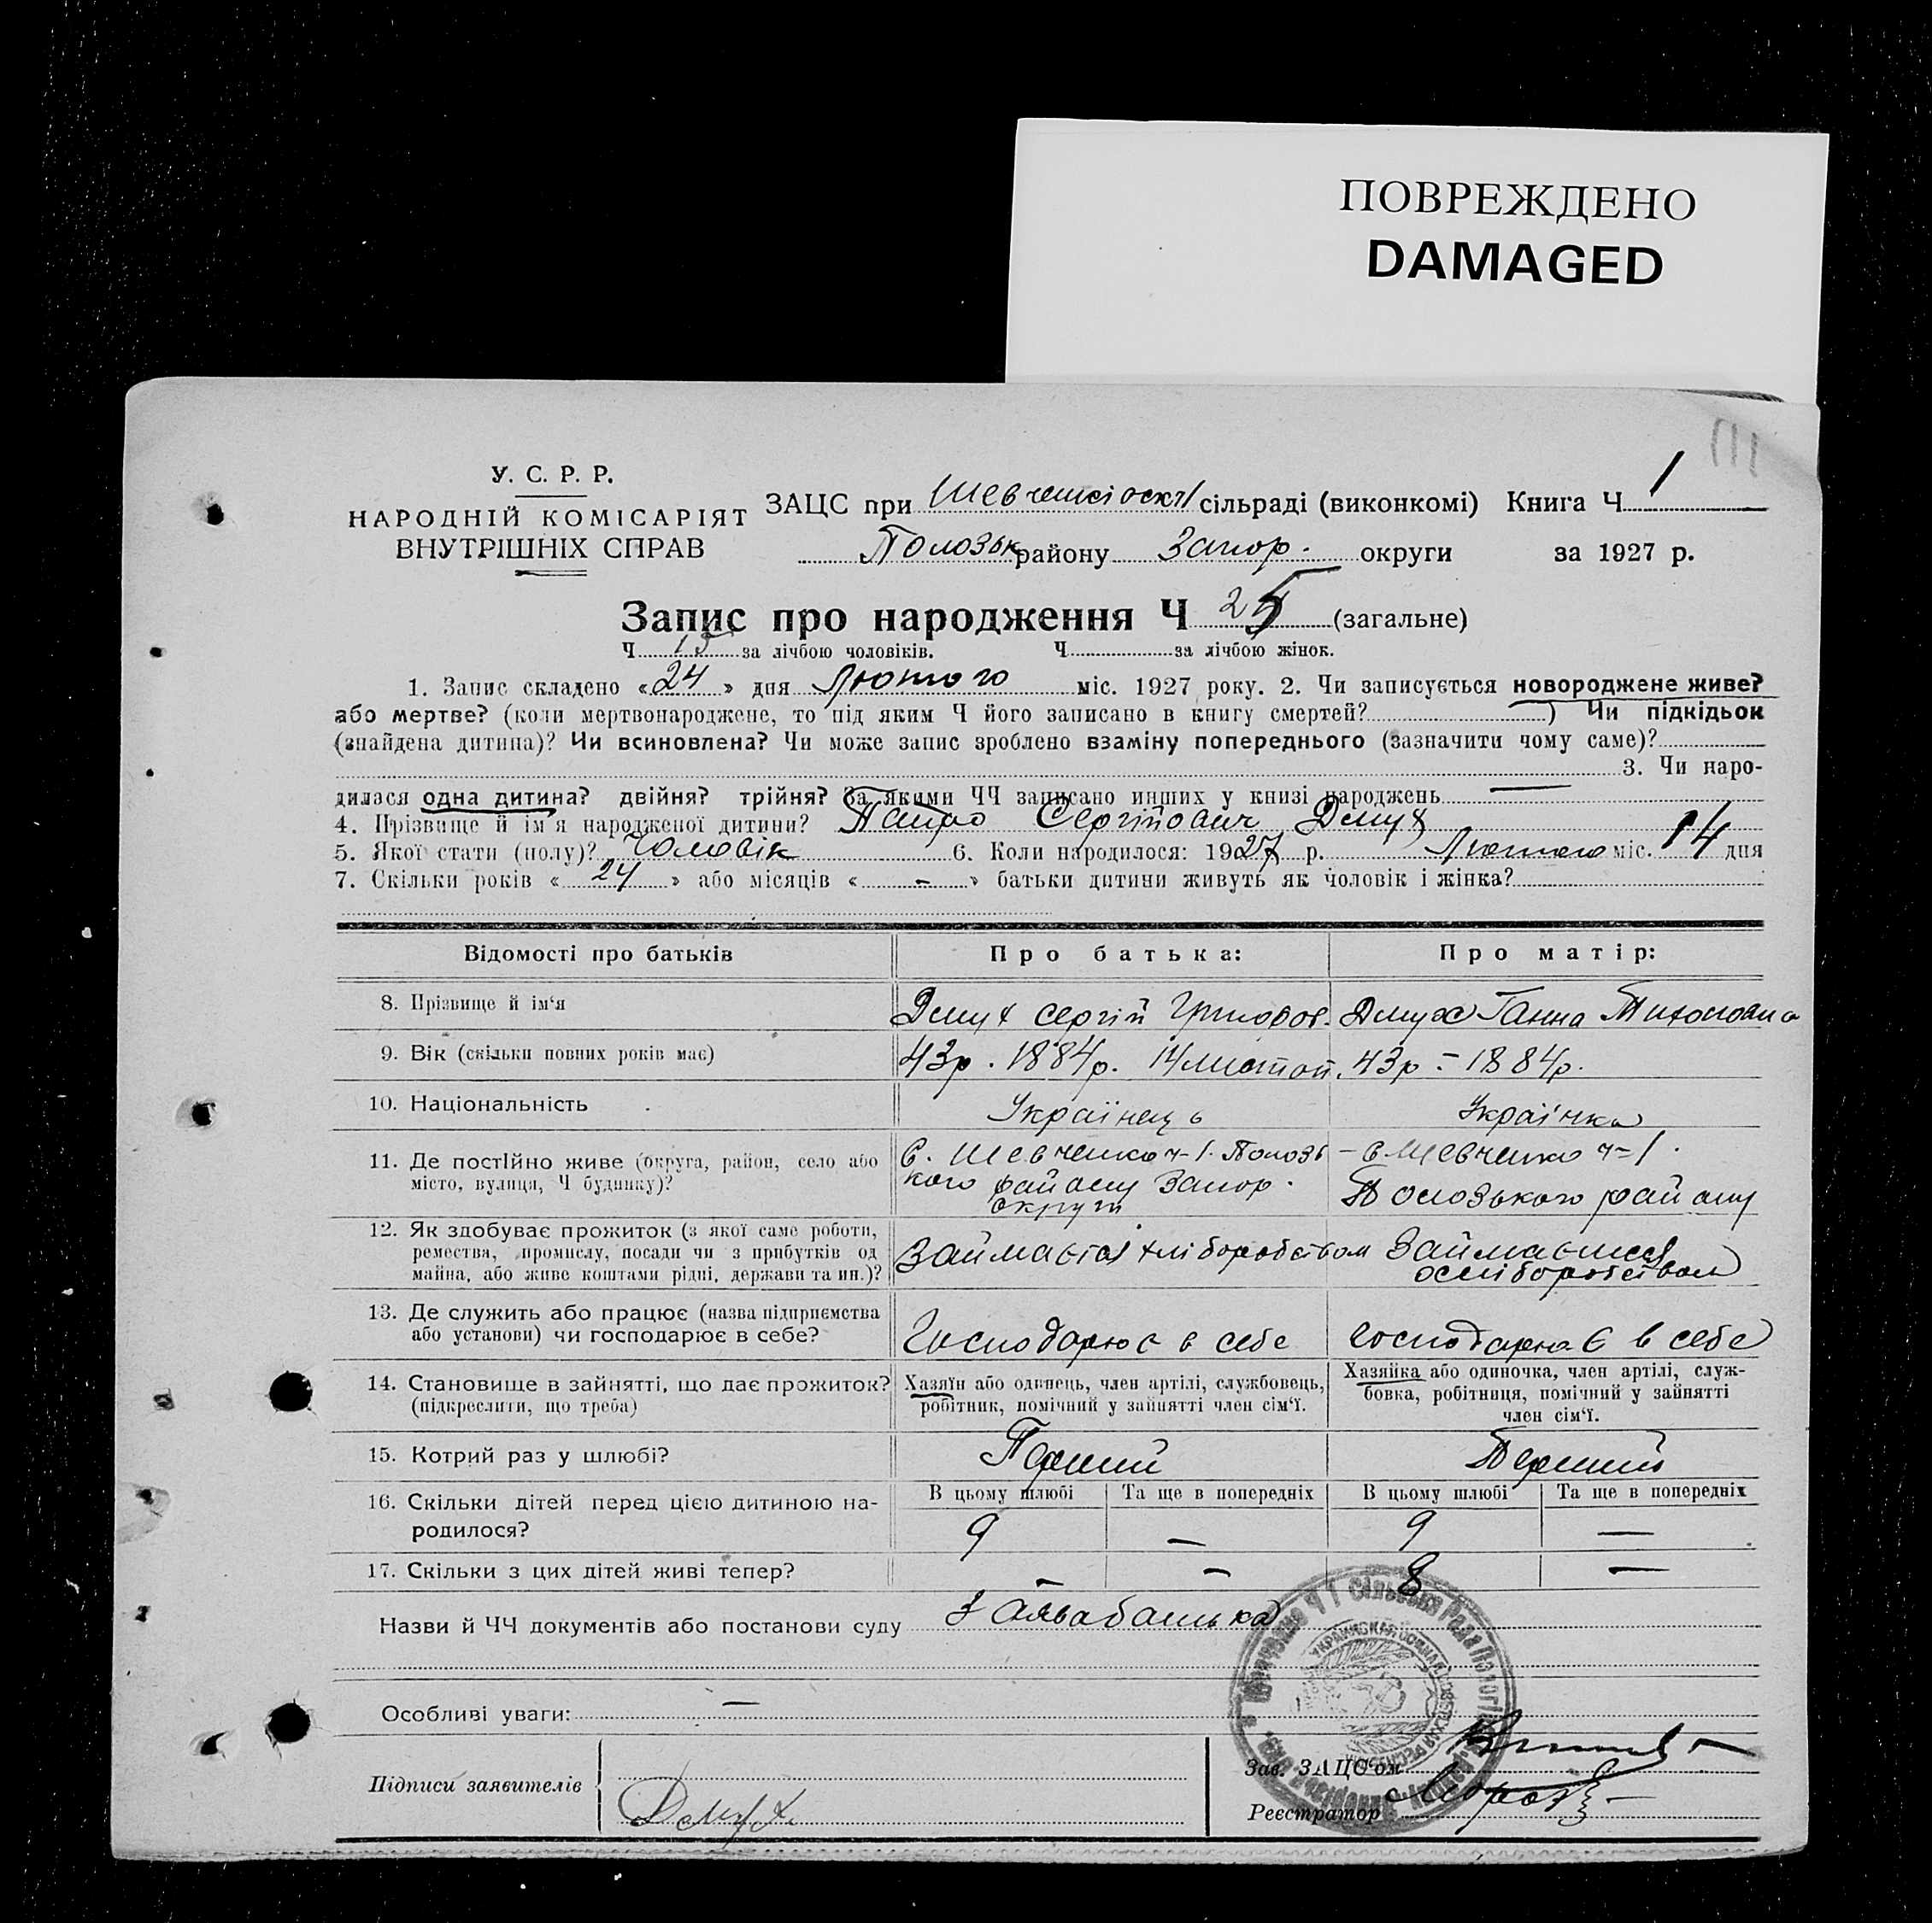 ПОВРЕЖДЕНО
DAMAGED
У. С. Р. Р.
НАРОДНІЙ КОМІСАРІЯТ
ВНУТРІШНІХ СПРАВ
ЗАЦС при сільраді (виконкомі) Книга Ч 1
Полозьк району Запор. округи за 1927 р.
Запис про народження Ч 25 (загальне)
Ч 15 за лічбою чоловіків. Ч за лічбою жінок.
1. Запис складено «24» дня Лютого міс. 1927 року. 2. Чи записується новороджене живе?
або мертве? (коли мертвонароджене, то під яким Ч його записано в книгу смертей? ) Чи підкідьок
(знайдена дитина)? Чи всиновлена? Чи може запис зроблено взаміну попереднього (зазначити чому саме)?
3. Чи наро-
дилася одна дитина? двійня? трійня? За якими ЧЧ записано инших у книзі народжень —
4. Прізвище й ім'я народженої дитини? Сергійович Демух
5. Якої стати (полу)? Чоловік 6. Коли народилося: 1927 р. Лютого міс. 14 дня
7. Скільки років «24» або місяців « - » батьки дитини живуть як чоловік і жінка?
Відомості про батьків Про батька: Про матір:
8. Прізвище й ім'я Демух Сергій Григоров. Демух Ганна Тихоновна
9. Вік (скільки повних років має) 43р. 1884р. 14 листоп. 43р - 1884р.
10. Національність Українець Українка
11. Де постійно живе (округа, район, село або місто, вулиця, Ч будинку)? с. Шевченко ч-1. Полозь
кого району Запор.
округи
- с. Шевченко ч-1.
Полозького району
12. Як здобуває прожиток (з якої саме роботи,
ремества, промислу, посади чи з прибутків од
майна, або живе коштами рідні, держави та ин.)?
Займаєтся хліборобством Займається
хліборобством
13. Де служить або працює (назва підприємства
або установи) чи господарює в себе?
Господарює в себе господарює в себе
14. Становище в зайнятті, що дає прожиток?
(підкреслити, що треба)
Хазяїн або одинець, член артілі, службовець,
робітник, помічний у зайнятті член сім'ї.
Хазяйка або одиночка, член артілі, служ-
бовка, робітниця, помічний у зайнятті
член сім'ї.
15. Котрий раз у шлюбі? Перший Перший
16. Скільки дітей перед цією дитиною на-
родилося?
В цьому шлюбі Та ще в попередніх В цьому шлюбі Та ще в попередніх
9 — 9 —
17. Скільки з цих дітей живі тепер? - - 8 —
Назви й ЧЧ документів або постанови суду Заява батька
Особливі уваги: —
Підписи заявителів Демух
Зав. ЗАЦС'ом
Реєстратор